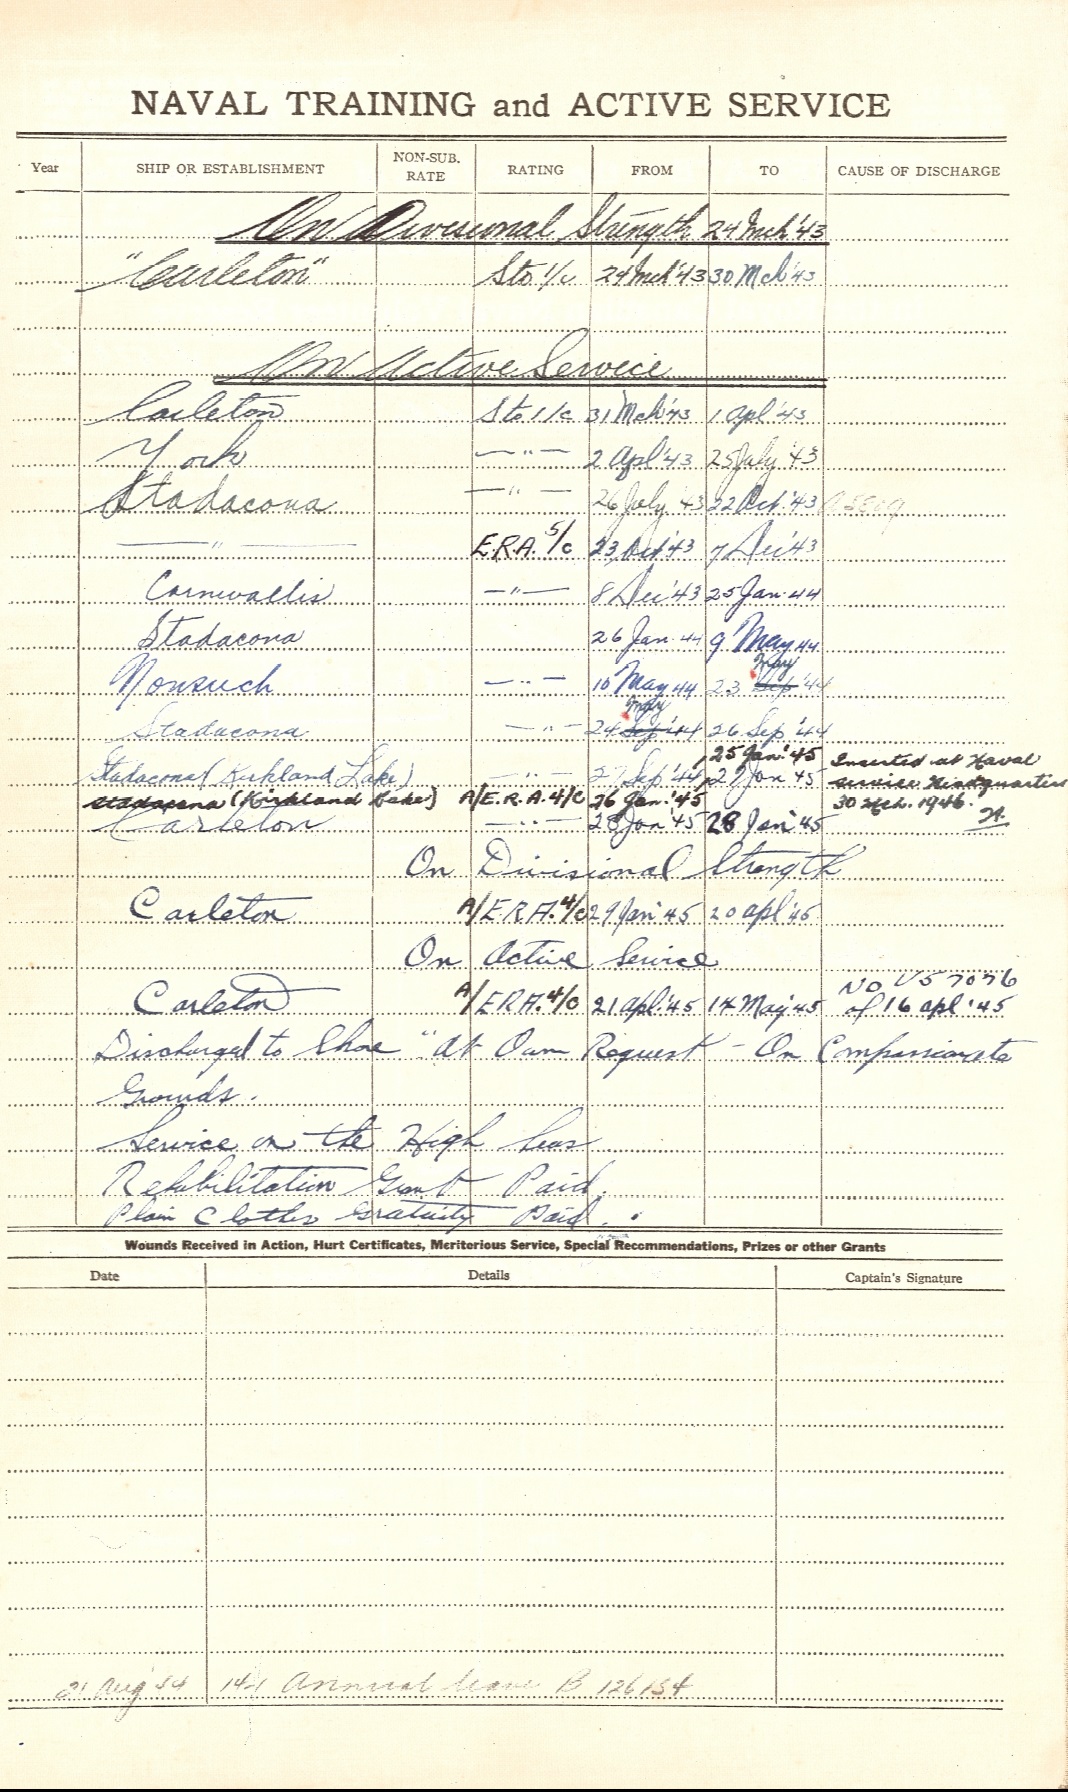 NAVAL TRAINING and ACTIVE SERVICE
Year SHIP OR ESTABLISHMENT NON-SUB. RATE RATING FROM TO CAUSE OF DISCHARGE
On Divisional Strength 24 Mch '43
"Carleton" Sto 1/c 24 Mch '43 30 Mch '43
On Active Service
Carleton Sto 1/c 31 Mch '43 1 Apl '43
York —"— 2 Apl '43 25 July '43
Stadacona —"— 26 July '43 22 Oct. '43
—"— E.R.A. 5/c 23 Oct '43 7 Dec '43
Cornwallis —"— 8 Dec '43 25 Jan. 44
Stadacona 26 Jan. 44 9 May 44
May
Nonsuch —"— 10 May 44 23 Sep '44
May
Stadacona —"— 24 Sep '44 26 Sep '44
25 Jan. '45 Inserted at Naval
Stadacona (Kirkland Lake) —"— 27 Sep '44 27 Jan 45 Service Headquarters
Stadacona (Kirkland Lake) A/E.R.A. 4/c 26 Jan. '45 30 Mch. 1946.
Carleton —"— 28 Jan '45 28 Jan '45
On Divisional Strength
Carleton A/E.R.A. 4/c 29 Jan '45 20 Apl '45
On Active Service
NO U57076
Carleton A/E.R.A. 4/c 21 Apl. '45 14 May '45 of 16 Apl '45
Discharged to Shore "At Own Request — On Compassionate
Grounds.
Service on the High Seas
Rehabilitation Grant Paid.
Plain Clothes Gratuity Paid.
Wounds Received in Action, Hurt Certificates, Meritorious Service, Special Recommendations, Prizes or other Grants
Date Details Captain's Signature
Aug '54 Annual leave B 126154